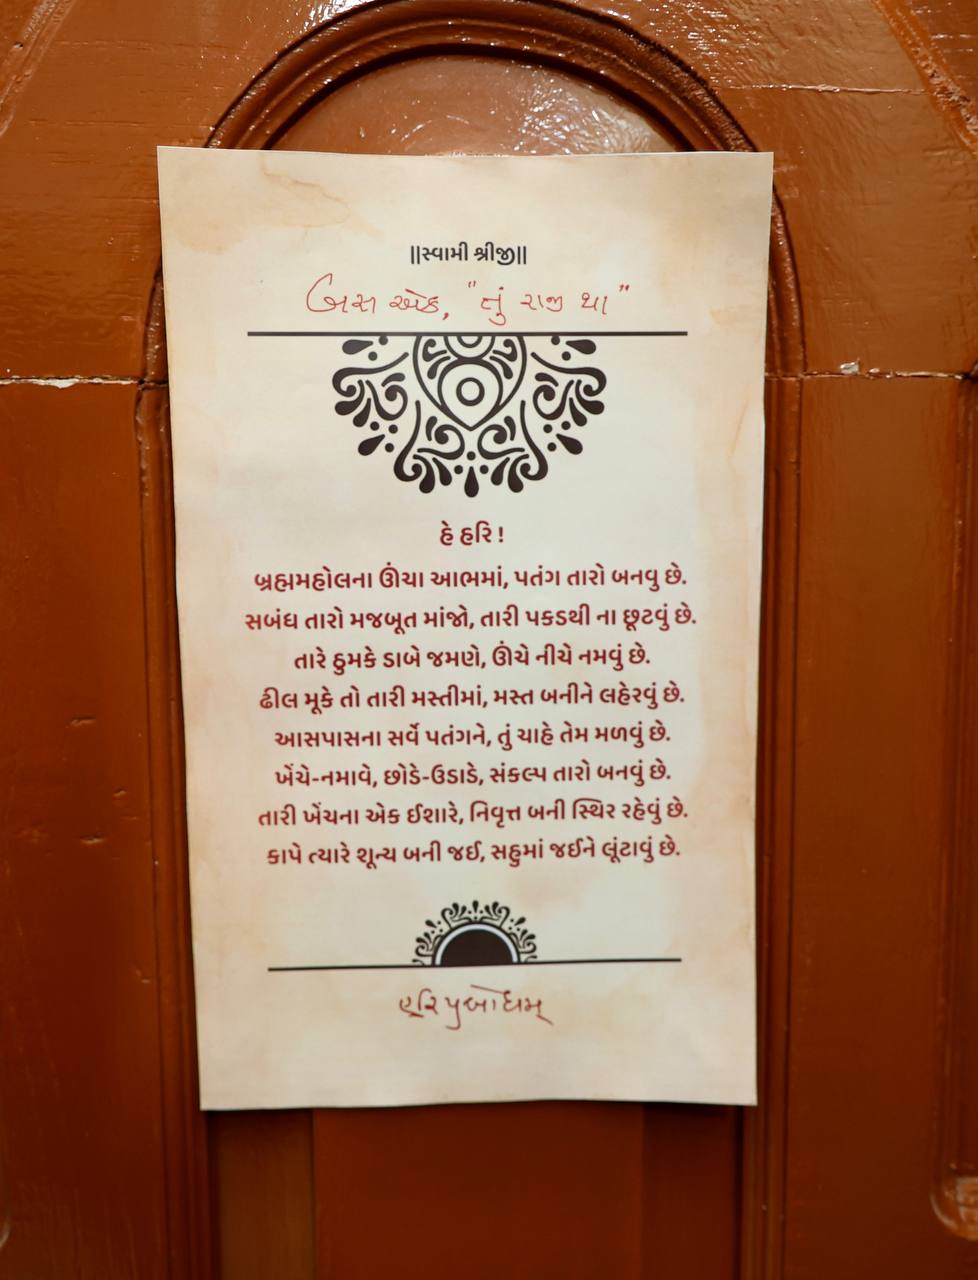 ||સ્વામી શ્રીજી||
બસ એક, "તું રાજી થા"
હે હરિ !
બ્રહ્મમહોલના ઊંચા આભમાં, પતંગ તારો બનવુ છે.
સબંધ તારો મજબૂત માંજો, તારી પકડથી ના છૂટવું છે.
તારે ઠુમકે ડાબે જમણે, ઊંચે નીચે નમવું છે.
ઢીલ મૂકે તો તારી મસ્તીમાં, મસ્ત બનીને લહેરવું છે.
આસપાસના સર્વે પતંગને, તું ચાહે તેમ મળવું છે.
ખેંચે-નમાવે, છોડે-ઉડાડે, સંકલ્પ તારો બનવું છે.
તારી ખેંચના એક ઈશારે, નિવૃત્ત બની સ્થિર રહેવું છે.
કાપે ત્યારે શૂન્ય બની જઈ, સહુમાં જઈને લૂંટાવું છે.
હરિપ્રબોધમ્